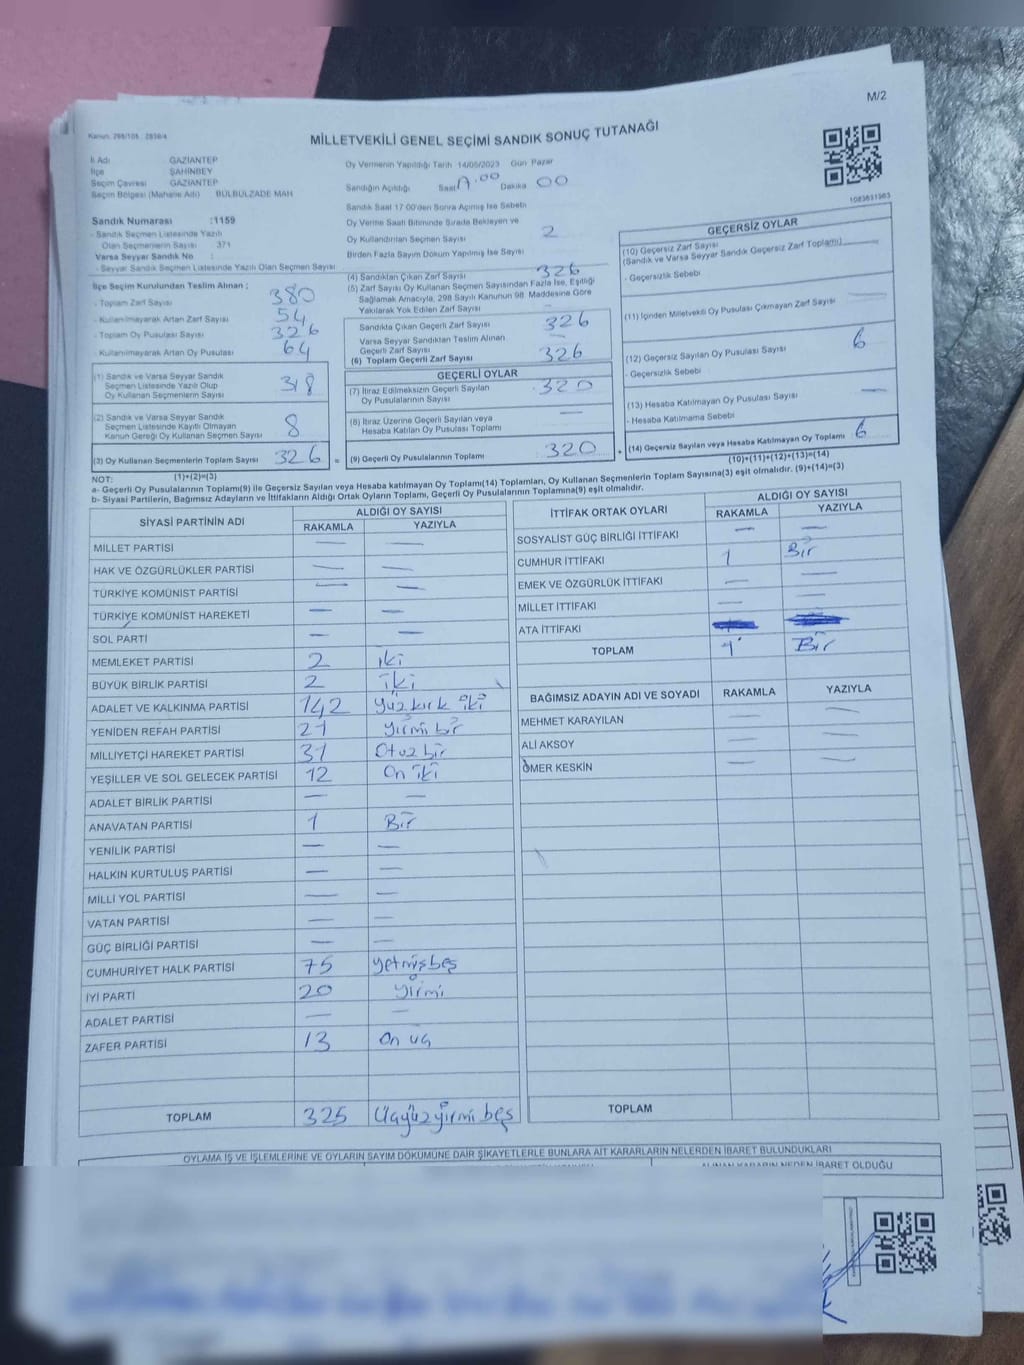 M/2
MİLLETVEKİLİ GENEL SEÇİMİ SANDIK SONUÇ TUTANAĞI
İl Adı GAZİANTEP
İlçe ŞAHİNBEY
Seçim Çevresi GAZİANTEP
Seçim Bölgesi (Mahalle Adı) BÜLBÜLZADE MAH
Sandık Numarası :1159
- Sandık Seçmen Listesinde Yazılı
Olan Seçmenlerin Sayısı 371
Varsa Seyyar Sandık No :
- Seyyar Sandık Seçmen Listesinde Yazılı Olan Seçmen Sayısı
İlçe Seçim Kurulundan Teslim Alınan ;
- Toplam Zarf Sayısı 380
- Kullanılmayarak Artan Zarf Sayısı 54
- Toplam Oy Pusulası Sayısı 326
- Kullanılmayarak Artan Oy Pusulası 64
(1) Sandık ve Varsa Seyyar Sandık
Seçmen Listesinde Yazılı Olup
Oy Kullanan Seçmenlerin Sayısı 318
(2) Sandık ve Varsa Seyyar Sandık
Seçmen Listesinde Kayıtlı Olmayan
Kanun Gereği Oy Kullanan Seçmen Sayısı 8
(3) Oy Kullanan Seçmenlerin Toplam Sayısı 326 =
(1)+(2)=(3)
Oy Vermenin Yapıldığı Tarih 14/05/2023 Gün Pazar
Sandığın Açıldığı Saat 00 Dakika 00
Sandık Saat 17:00'den Sonra Açılmış İse Sebebi
Oy Verme Saati Bitiminde Sırada Bekleyen ve
Oy Kullandırılan Seçmen Sayısı 2
Birden Fazla Sayım Döküm Yapılmış İse Sayısı
(4) Sandıktan Çıkan Zarf Sayısı 326
(5) Zarf Sayısı Oy Kullanan Seçmen Sayısından Fazla İse, Eşitliği
Sağlamak Amacıyla, 298 Sayılı Kanunun 98. Maddesine Göre
Yakılarak Yok Edilen Zarf Sayısı —
Sandıkta Çıkan Geçerli Zarf Sayısı 326
Varsa Seyyar Sandıktan Teslim Alınan
Geçerli Zarf Sayısı —
(6) Toplam Geçerli Zarf Sayısı 326
GEÇERLİ OYLAR
(7) İtiraz Edilmeksizin Geçerli Sayılan
Oy Pusulalarının Sayısı 320
(8) İtiraz Üzerine Geçerli Sayılan veya
Hesaba Katılan Oy Pusulası Toplamı —
(9) Geçerli Oy Pusulalarının Toplamı 320 +
1083631983
GEÇERSİZ OYLAR
(10) Geçersiz Zarf Sayısı
(Sandık ve Varsa Seyyar Sandık Geçersiz Zarf Toplamı) —
- Geçersizlik Sebebi
(11) İçinden Milletvekili Oy Pusulası Çıkmayan Zarf Sayısı —
(12) Geçersiz Sayılan Oy Pusulası Sayısı 6
- Geçersizlik Sebebi
(13) Hesaba Katılmayan Oy Pusulası Sayısı —
- Hesaba Katılmama Sebebi
(14) Geçersiz Sayılan veya Hesaba Katılmayan Oy Toplamı 6
(10)+(11)+(12)+(13)=(14)
NOT:
a- Geçerli Oy Pusulalarının Toplamı(9) ile Geçersiz Sayılan veya Hesaba katılmayan Oy Toplamı(14) Toplamları, Oy Kullanan Seçmenlerin Toplam Sayısına(3) eşit olmalıdır. (9)+(14)=(3)
b- Siyasi Partilerin, Bağımsız Adayların ve İttifakların Aldığı Ortak Oyların Toplamı, Geçerli Oy Pusulalarının Toplamına(9) eşit olmalıdır.
SİYASİ PARTİNİN ADI ALDIĞI OY SAYISI
RAKAMLA YAZIYLA
MİLLET PARTİSİ — —
HAK VE ÖZGÜRLÜKLER PARTİSİ — —
TÜRKİYE KOMÜNİST PARTİSİ — —
TÜRKİYE KOMÜNİST HAREKETİ — —
SOL PARTİ — —
MEMLEKET PARTİSİ 2 iki
BÜYÜK BİRLİK PARTİSİ 2 iki
ADALET VE KALKINMA PARTİSİ 142 Yüz kırk iki
YENİDEN REFAH PARTİSİ 21 yirmi bir
MİLLİYETÇİ HAREKET PARTİSİ 31 Otuz bir
YEŞİLLER VE SOL GELECEK PARTİSİ 12 On iki
ADALET BİRLİK PARTİSİ — —
ANAVATAN PARTİSİ 1 Bir
YENİLİK PARTİSİ — —
HALKIN KURTULUŞ PARTİSİ — —
MİLLİ YOL PARTİSİ — —
VATAN PARTİSİ — —
GÜÇ BİRLİĞİ PARTİSİ — —
CUMHURİYET HALK PARTİSİ 75 yetmişbeş
İYİ PARTİ 20 yirmi
ADALET PARTİSİ — —
ZAFER PARTİSİ 13 On üç
TOPLAM 325 Üçyüzyirmi beş
İTTİFAK ORTAK OYLARI ALDIĞI OY SAYISI
RAKAMLA YAZIYLA
SOSYALİST GÜÇ BİRLİĞİ İTTİFAKI — —
CUMHUR İTTİFAKI 1 Bir
EMEK VE ÖZGÜRLÜK İTTİFAKI — —
MİLLET İTTİFAKI — —
ATA İTTİFAKI
TOPLAM 1 Bir
BAĞIMSIZ ADAYIN ADI VE SOYADI RAKAMLA YAZIYLA
MEHMET KARAYILAN — —
ALİ AKSOY — —
ÖMER KESKİN — —
TOPLAM
OYLAMA İŞ VE İŞLEMLERİNE VE OYLARIN SAYIM DÖKÜMÜNE DAİR ŞİKAYETLERLE BUNLARA AİT KARARLARIN NELERDEN İBARET BULUNDUKLARI
ALINAN KARARIN NEDEN İBARET OLDUĞU